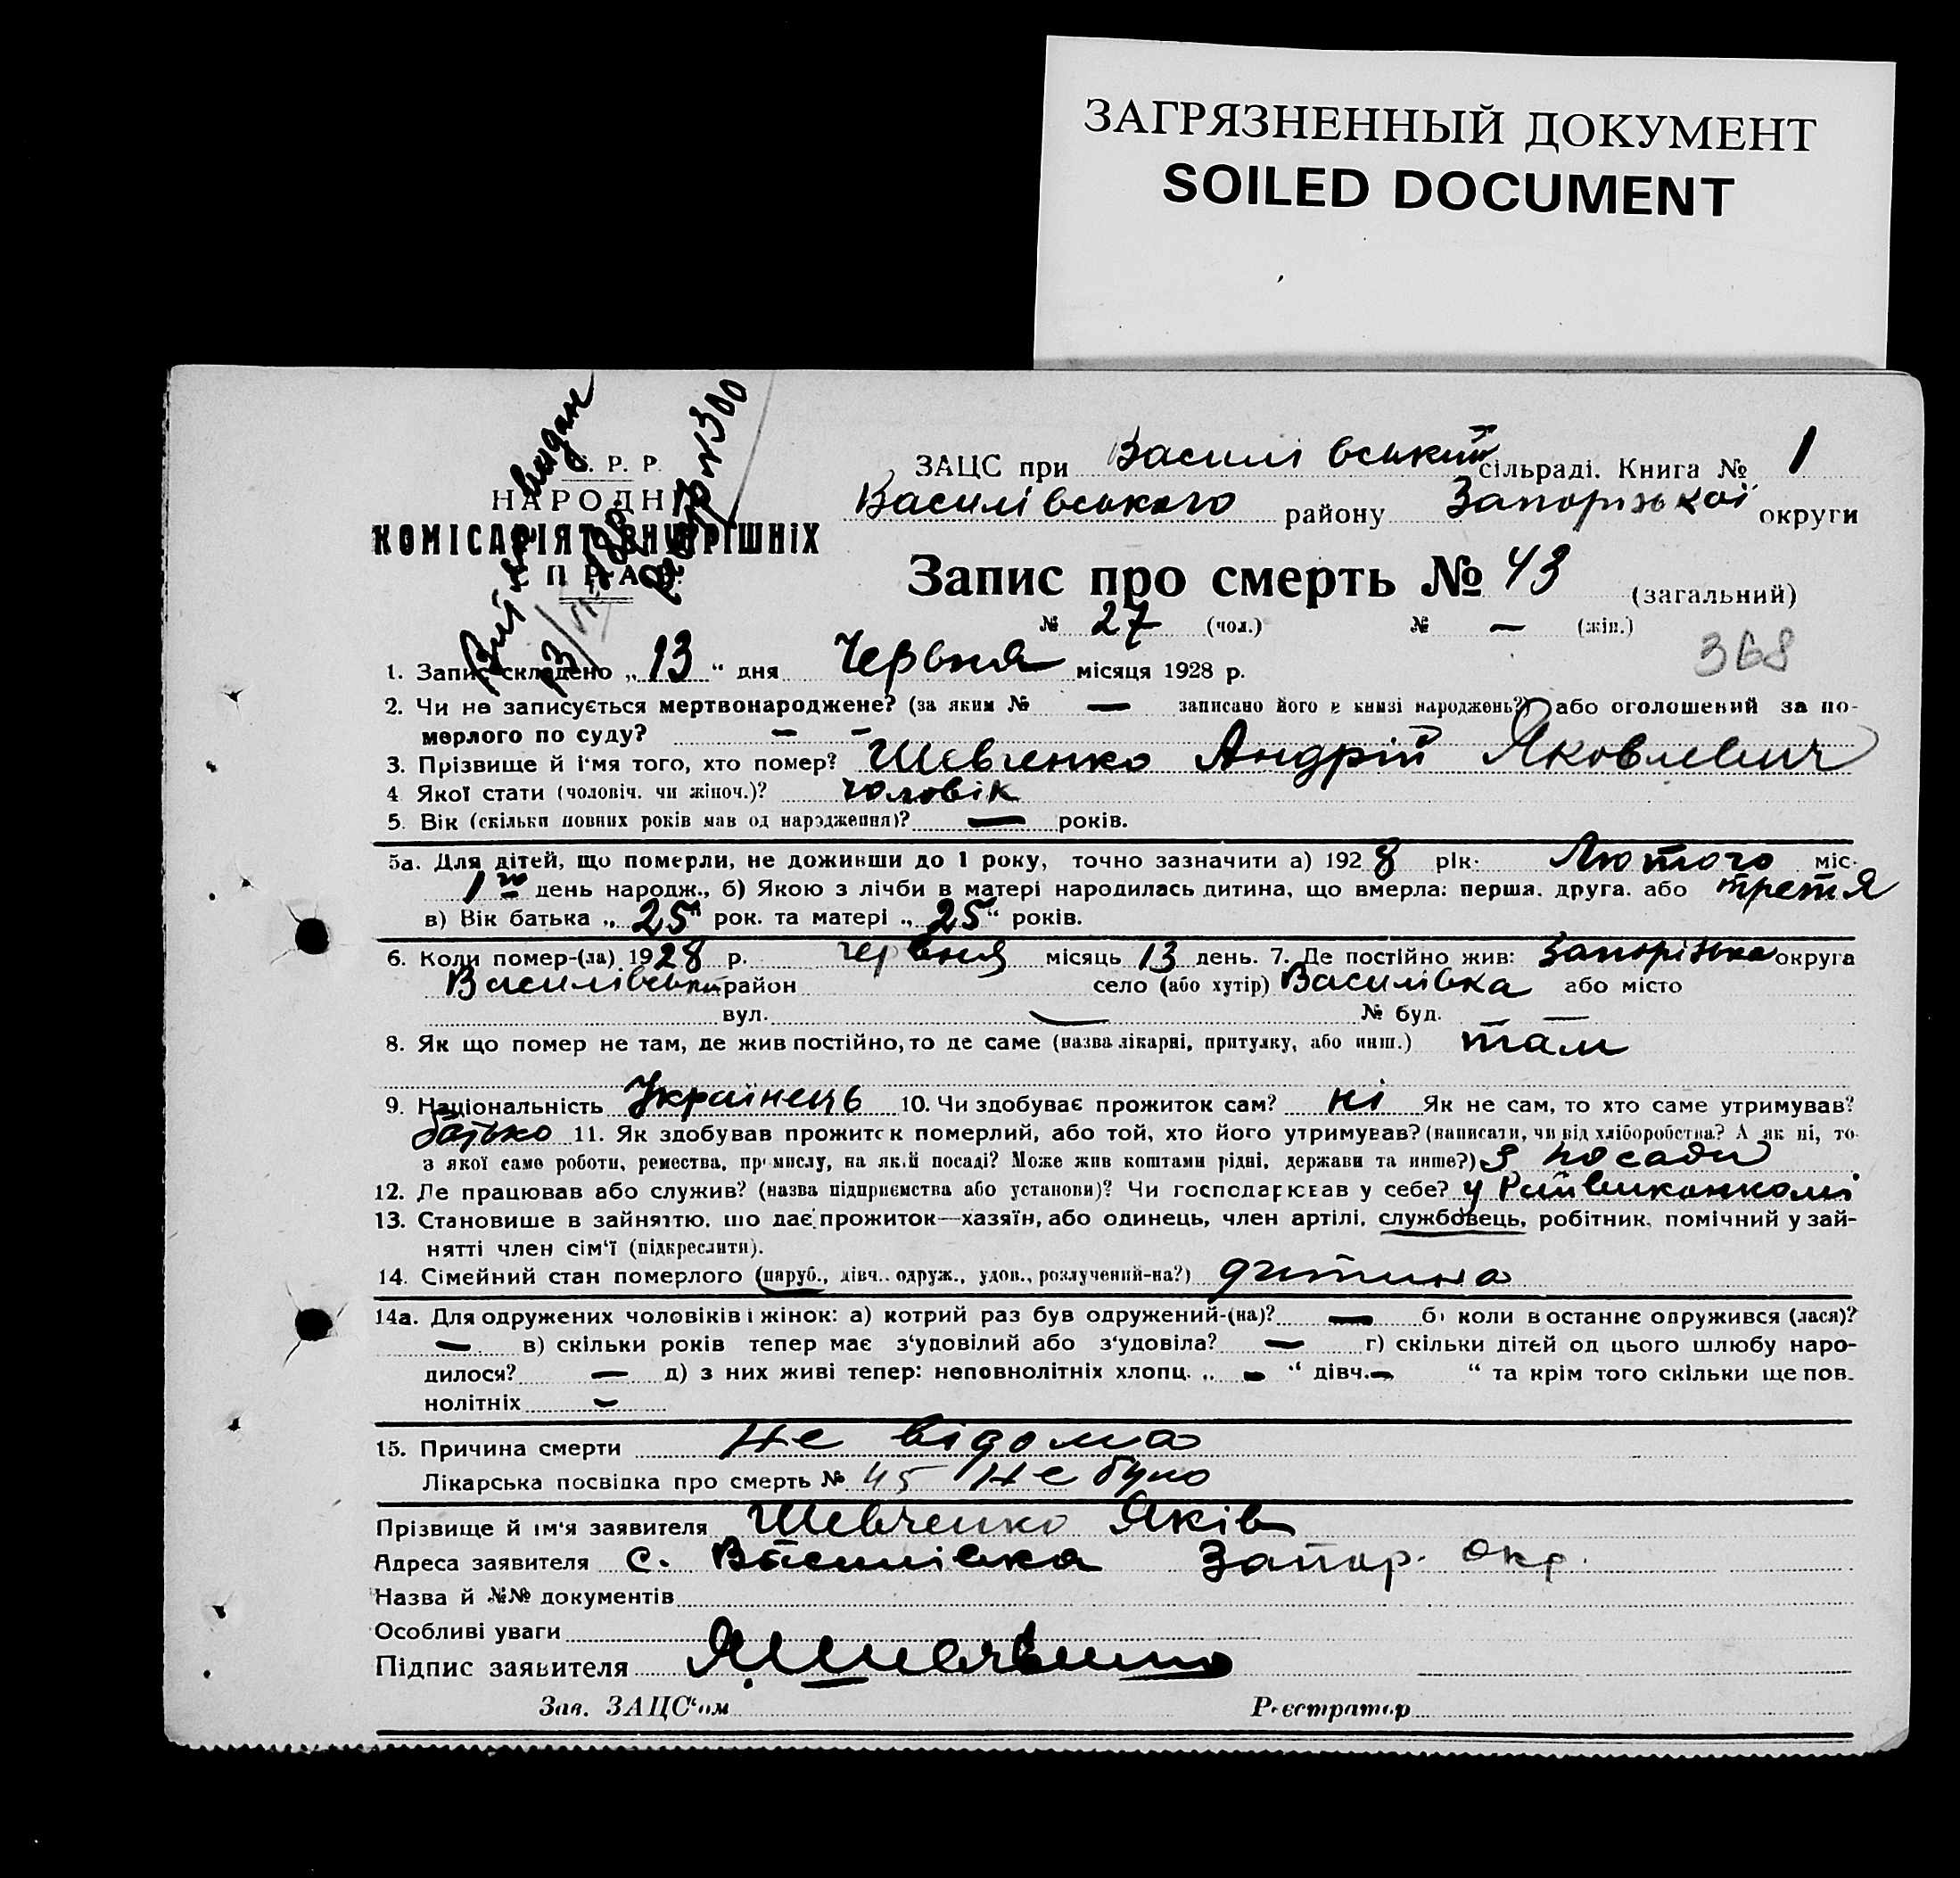 ЗАГРЯЗНЕННЫЙ ДОКУМЕНТ
SOILED DOCUMENT
. Р. Р.
НАРОДНІ
КОМІСАРІЯТ ВНУТРІШНІХ
СПРАВ
Витяг видан
№ 300
ЗАЦС при Василівський сільраді. Книга № 1
Василівського району Запорізької округи
Запис про смерть № 43 (загальний)
№ 27 (чол.) № — (жін.)
368
1. Запис складено „13“ дня Червня місяця 1928 р.
2. Чи не записується мертвонароджене? (за яким № — записано його в книзі народжень?) або оголошений за по-
мерлого по суду? — —
3. Прізвище й ім'я того, хто помер? Шевченко Андрій Яковлевич
4 Якої стати (чоловіч. чи жіноч.)? чоловік
5. Вік (скільки повних років мав од народження)? — років.
5а. Для дітей, що померли, не доживши до 1 року, точно зазначити а) 1928 рік. Лютого міс.
1го день народж., б) Якою з лічби в матері народилась дитина, що вмерла: перша. друга. або третя
в) Вік батька „25“ рок. та матері „25“ років.
6. Коли помер-(ла) 1928 р. червня місяць 13 день. 7. Де постійно жив: Запорізька округа
Василівський район село (або хутір) Василівка або місто
вул. — № буд. — —
8. Як що помер не там, де жив постійно, то де саме (назва лікарні, притулку, або инш.) там
9. Національність Українець 10. Чи здобуває прожиток сам? ні Як не сам, то хто саме утримував?
батько 11. Як здобував прожиток померлий, або той, хто його утримував? (написати, чи від хліборобства? А як ні, то
з якої саме роботи, ремества, промислу, на якій посаді? Може жив коштами рідні, держави та инше?) З посади
12. Де працював або служив? (назва підприємства або установи)? Чи господарював у себе? у Райвиконкомі
13. Становише в зайняттю, що дає прожиток—хазяїн, або одинець, член артілі, службовець, робітник, помічний у зай-
нятті член сім'ї (підкреслити).
14. Сімейний стан померлого (паруб., дівч.. одруж., удов., розлучений-на?) дитина
14а. Для одружених чоловіків і жінок: а) котрий раз був одружений-(на)? — б) коли в останнє одружився (лася)?
— в) скільки років тепер має з'удовілий або з'удовіла? — г) скільки дітей од цього шлюбу наро-
дилося? — д) з них живі тепер: неповнолітніх хлопц. „ — “ дівч. — “ та крім того скільки ще пов.
нолітніх —
15. Причина смерти Не відома
Лікарська посвідка про смерть № 45 Не було
Прізвище й ім'я заявителя Шевченко Яків
Адреса заявителя с. Василівка Запор. Окр.
Назва й №№ документів
Особливі уваги
Підпис заявителя Я. Шевченко
Зав. ЗАЦС'ом Реєстратор